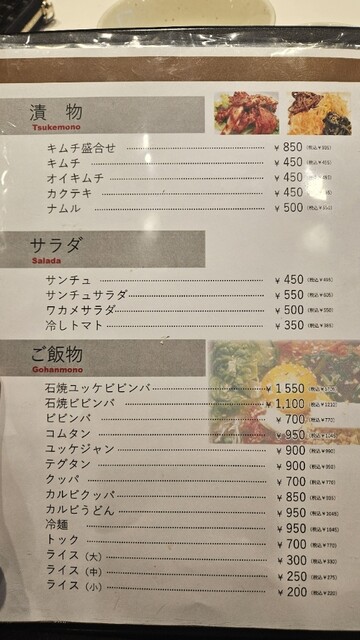 漬 物
Tsukemono
キムチ盛合せ ¥850
キムチ ¥450
オイキムチ ¥450
カクテキ ¥450
ナムル ¥500
サラダ
Salada
サンチュ ¥450
サンチュサラダ ¥550 (税込¥605)
ワカメサラダ ¥500 (税込¥550)
冷しトマト ¥350 (税込¥385)
ご飯物
Gohanmono
石焼ユッケビビンバ ¥1550
石焼ビビンバ ¥1,100 (税込¥1210)
ビビンバ ¥700 (税込¥770)
コムタン ¥950
ユッケジャン ¥900 (税込¥990)
テグタン ¥900 (税込¥990)
クッパ ¥700 (税込¥770)
カルビクッパ ¥850 (税込¥935)
カルビうどん ¥950 (税込¥1045)
冷麺 ¥950 (税込¥1045)
トック ¥700 (税込¥770)
ライス（大） ¥300 (税込¥330)
ライス（中） ¥250 (税込¥275)
ライス（小） ¥200 (税込¥220)